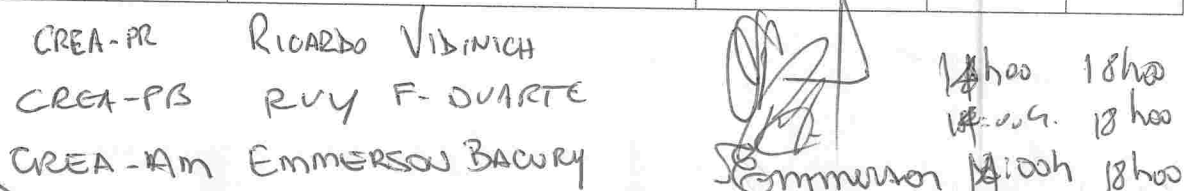 CREA-PR RICARDO VIDINICH 14h00 18h00
CREA-PB RUY F. DUARTE 18h00
CREA-AM EMMERSON BACURY Emmerson 14:00h 18h00